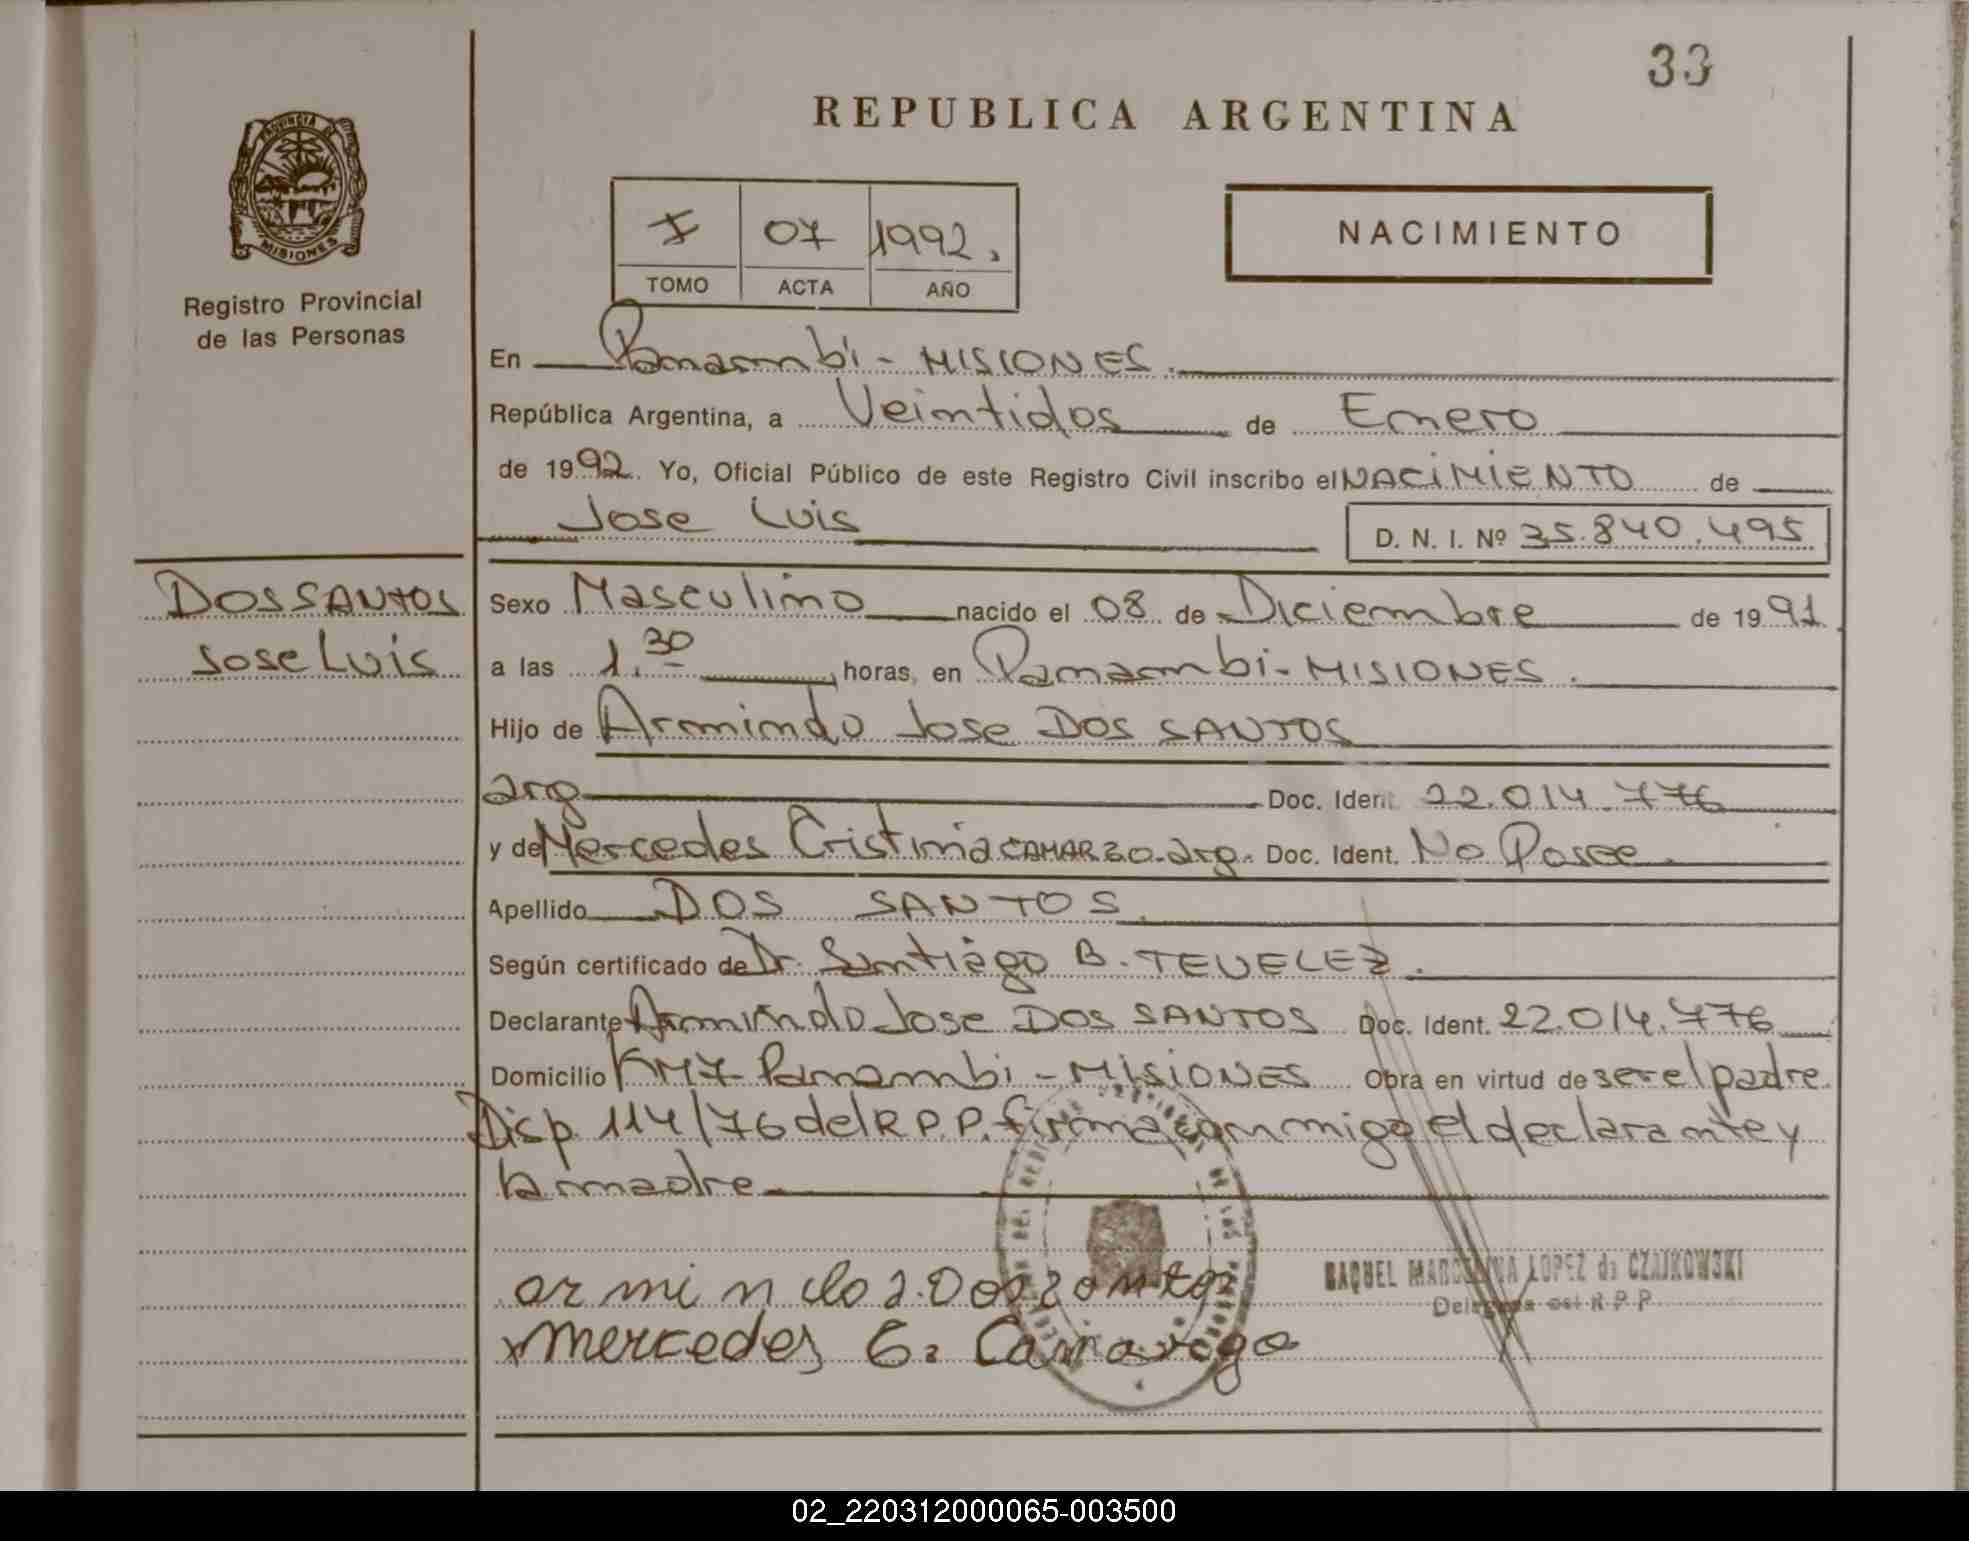 33
REPUBLICA ARGENTINA
I 07 1992.
TOMO ACTA AÑO
NACIMIENTO
MISIONES
Registro Provincial
de las Personas
En Panambi - MISIONES.
República Argentina, a Veintidos de Enero
de 1992. Yo, Oficial Público de este Registro Civil inscribo el NACIMIENTO de
Jose Luis
D. N. I. Nº 35.840.495
DOS SANTOS
Jose Luis
Sexo Masculino nacido el 08 de Diciembre de 1991
a las 1.30 horas, en Panambi - MISIONES.
Hijo de Armindo Jose DOS SANTOS
arg Doc. Ident. 22.014.776
y de Mercedes Cristina arg. Doc. Ident. No Posee
Apellido DOS SANTOS
Según certificado de Dr. Santiago B. TEVELEZ.
Declarante Armindo Jose DOS SANTOS Doc. Ident. 22.014.776
Domicilio KM7 Panambi - MISIONES Obra en virtud de ser el padre
Disp. 114/76 del R.P.P. firma conmigo el declarante y
la madre
armindo J. Dos santos
x mercedes C. Camargo
RAQUEL MARCELINA LOPEZ de CZAJKOWSKI
Delegada del R.P.P.
02_220312000065-003500